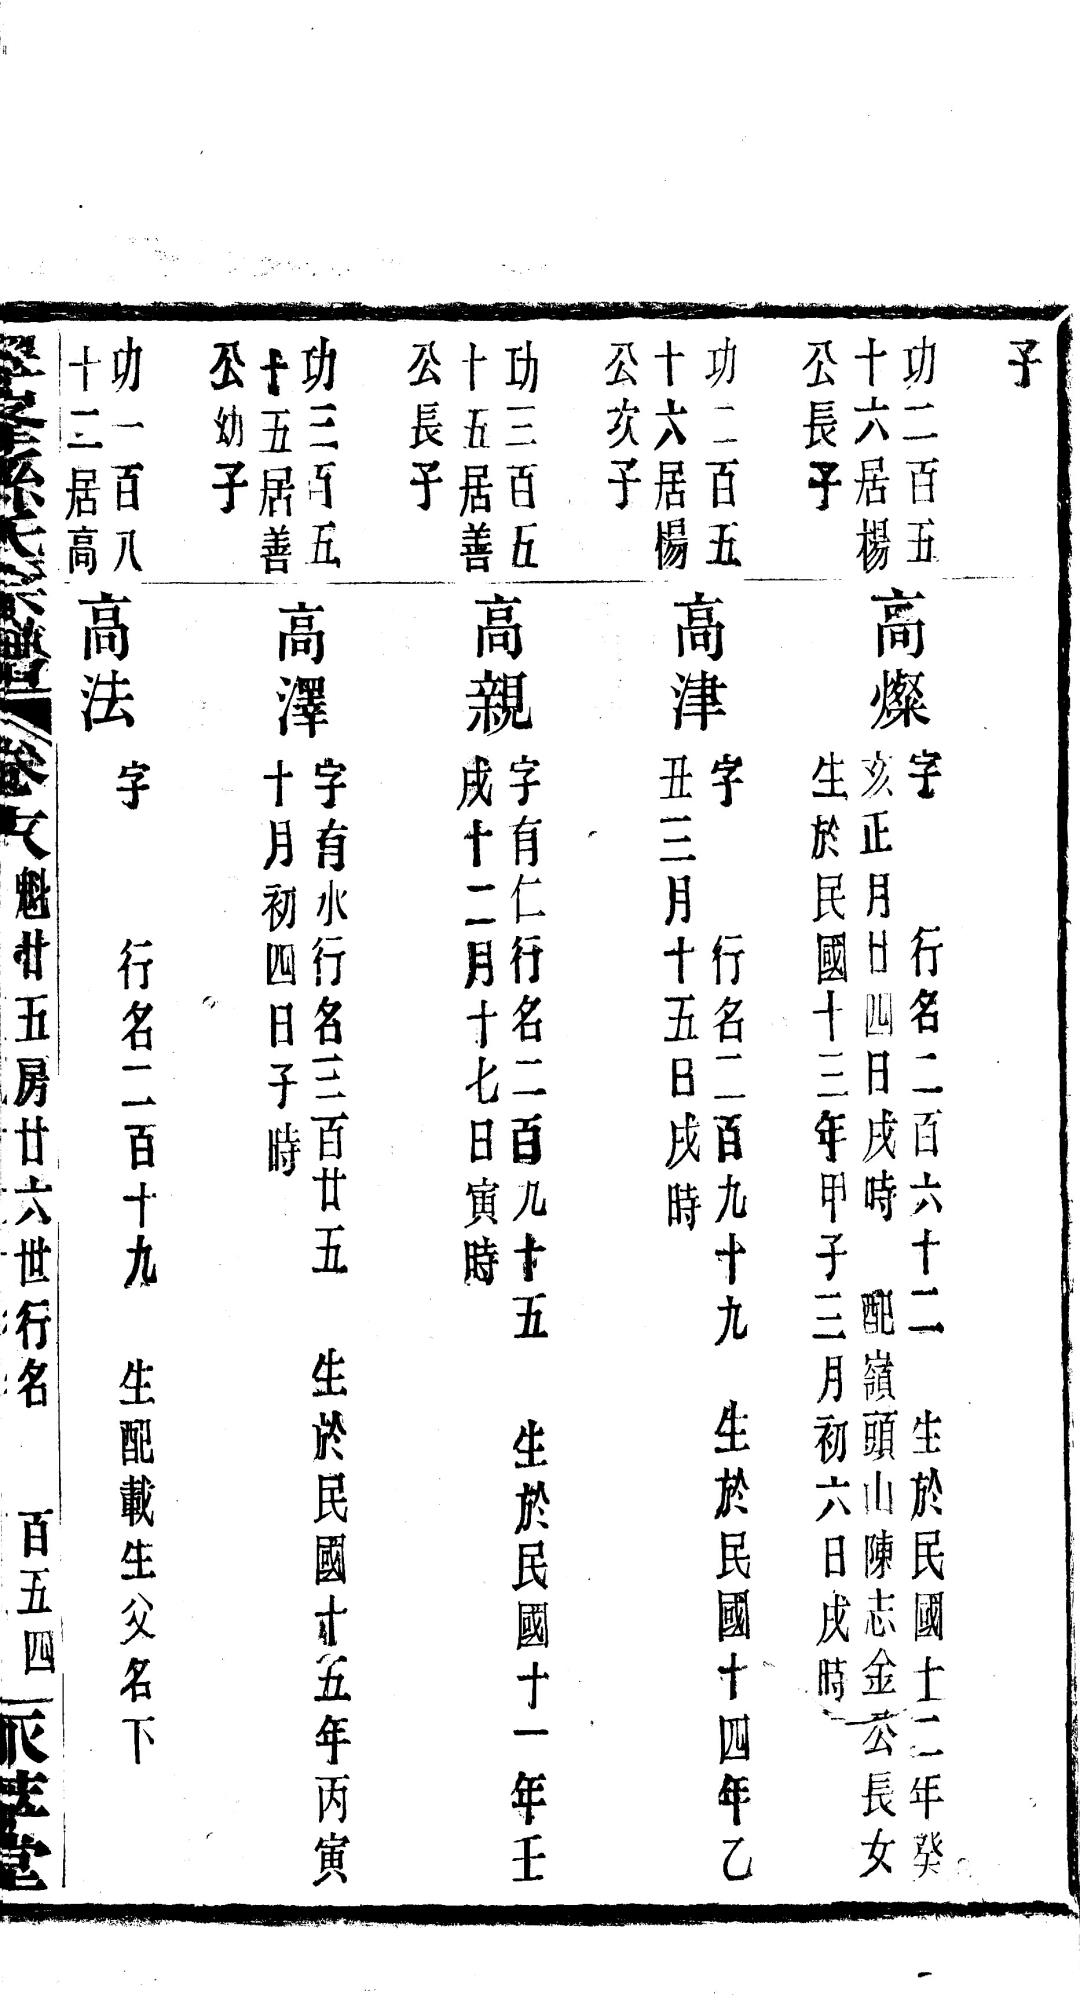 子
功二百五
十六居楊
公長子
高燦
字　行名二百六十二　生於民國十二年癸
亥正月廿四日戌時　配嶺頭山陳志金公長女
生於民國十三年甲子三月初六日戌時
功二百五
十六居楊
公次子
高津
字　行名二百九十九　生於民國十四年乙
丑三月十五日戌時
功三百五
十五居善
公長子
高親
字有仁行名二百九十五　生於民國十一年壬
戌十二月十七日寅時
功三百五
十五居善
公幼子
高澤
字有水行名三百廿五　生於民國十五年丙寅
十月初四日子時
功一百八
十二居高
高法
字　行名二百十九　生配載生父名下
孫氏宗譜 卷 魁廿五房廿六世行名　百五四